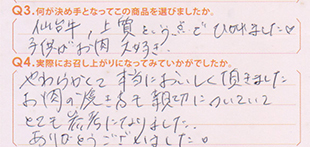 Q3.何が決め手となってこの商品を選びましたか。
仙台牛,上質という点でひかれました♡
子供がお肉 大好き.
Q4.実際にお召し上がりになってみていかがでしたか。
やわらかくて 本当においしく頂きました
お肉の焼き方も 親切についていて
とても 参考になりました.
ありがとうございました。